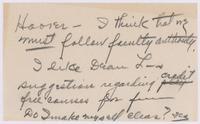 Hoover - I think that we
must follow faculty authority.
I like Dean L-s
suggestion regarding credit
free courses for
Do I make myself clear? yes